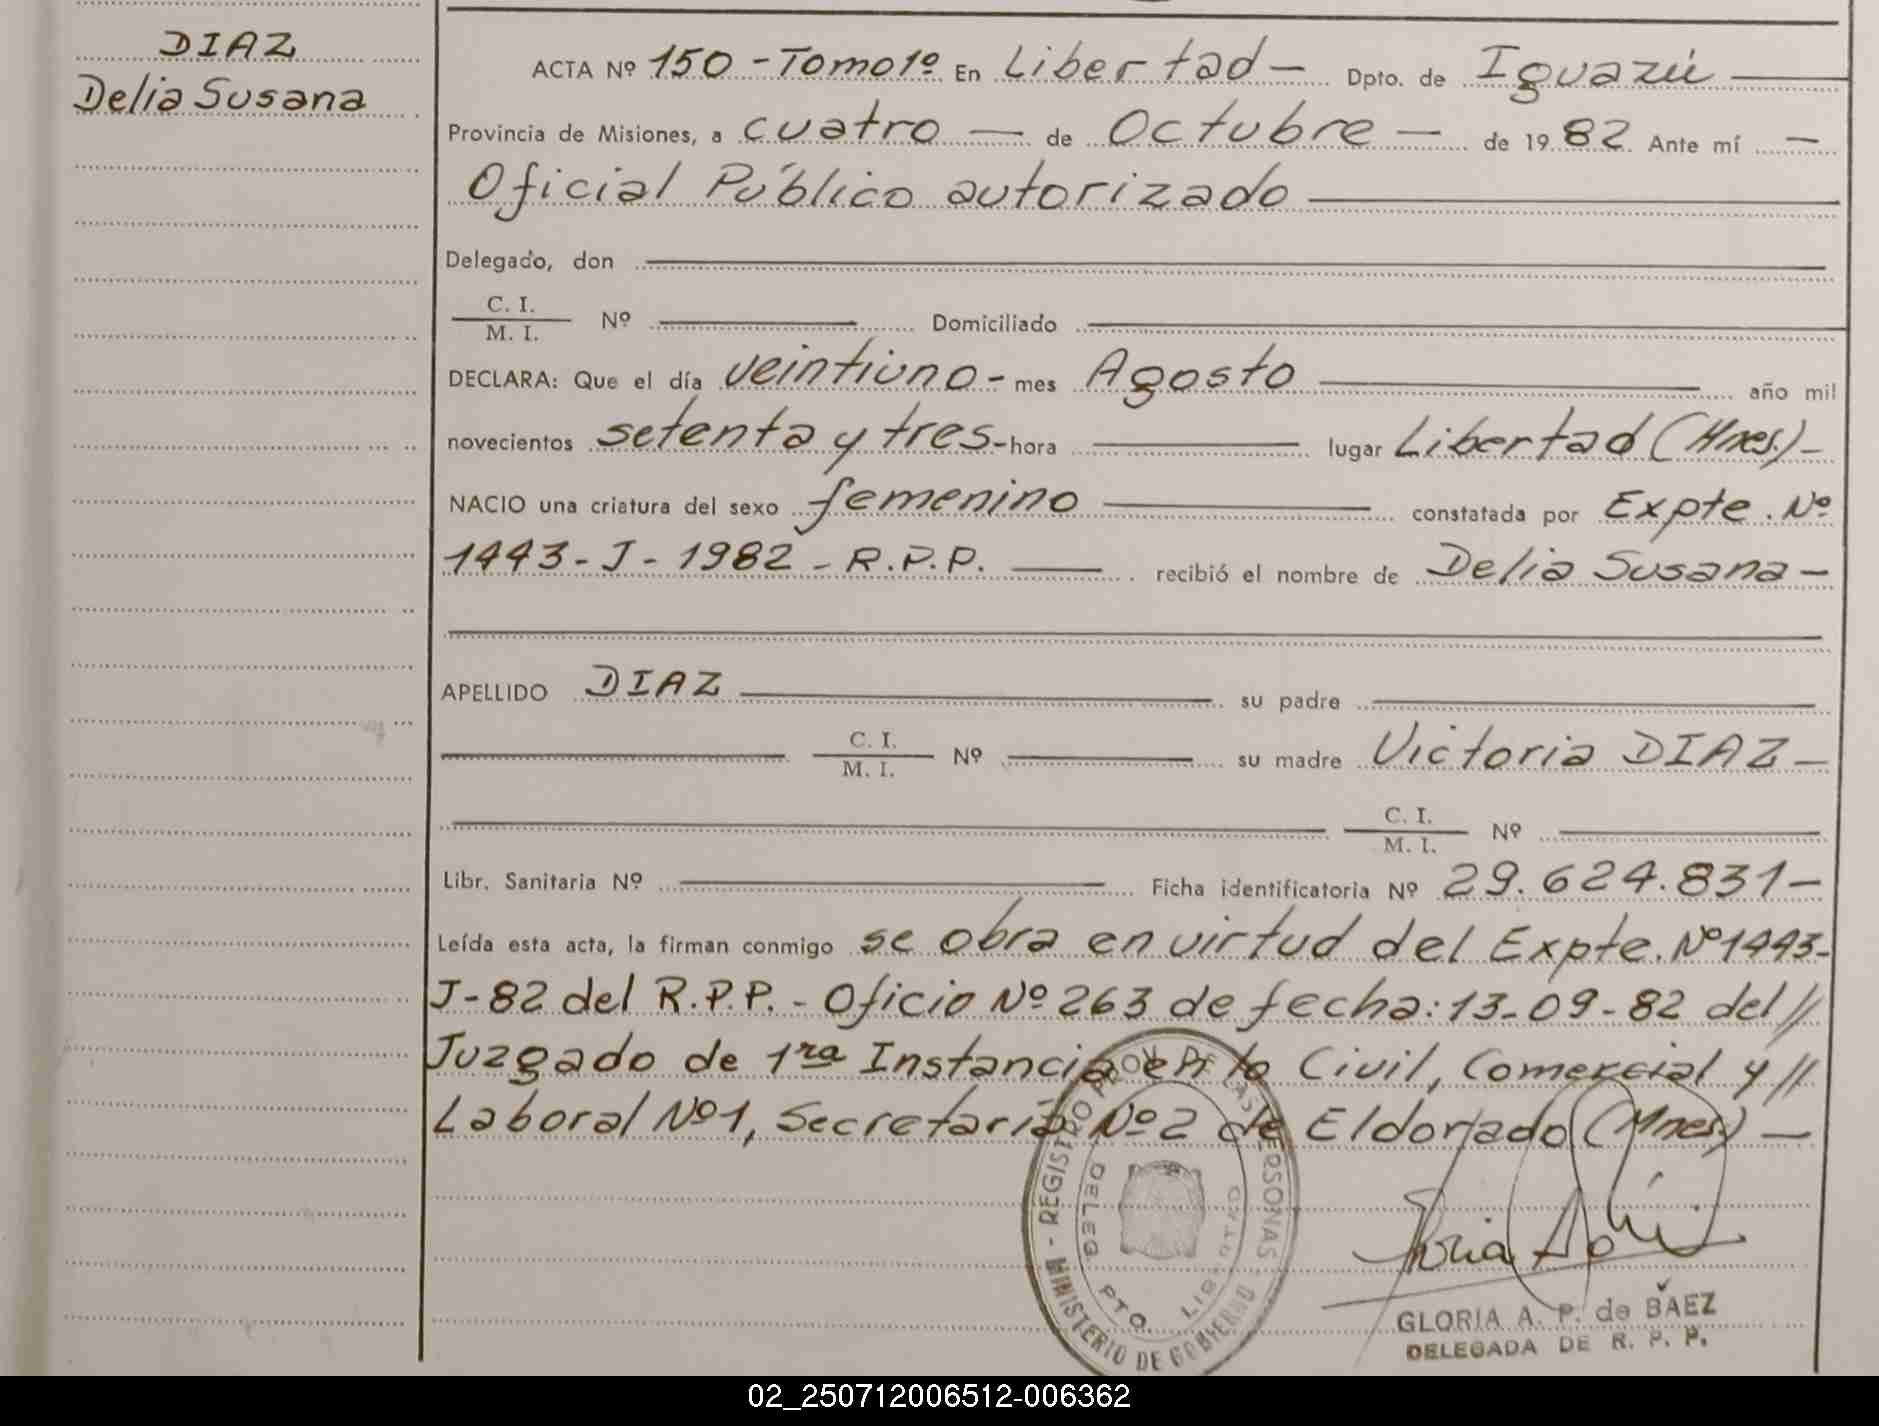 DIAZ
Delia Susana
ACTA Nº 150 - Tomo 1º En Libertad - Dpto. de Iguazú
Provincia de Misiones, a cuatro — de Octubre — de 1982 Ante mí —
Oficial Público autorizado
Delegado, don
C. I.
M. I.
Nº Domiciliado
DECLARA: Que el día veintiuno - mes Agosto año mil
novecientos setenta y tres - hora lugar Libertad (Mnes.) -
NACIO una criatura del sexo femenino constatada por Expte. Nº
1443 - J - 1982 - R.P.P. — recibió el nombre de Delia Susana -
APELLIDO DIAZ su padre
C. I.
M. I.
Nº su madre Victoria DIAZ -
C. I.
M. I.
Nº
Libr. Sanitaria Nº Ficha identificatoria Nº 29.624.831 -
Leída esta acta, la firman conmigo se obra en virtud del Expte. Nº 1443-
J-82 del R.P.P. - Oficio Nº 263 de fecha: 13-09-82 del //
Juzgado de 1ra Instancia en lo Civil, Comercial y //
Laboral Nº1, Secretaría Nº2 de Eldorado (Mnes) —
- REGISTRO PROV. DE LAS PERSONAS -
MINISTERIO DE GOBIERNO
DELEG. PTO. LIBERTAD
GLORIA A. P. de BAEZ
DELEGADA DE R. P. P.
02_250712006512-006362